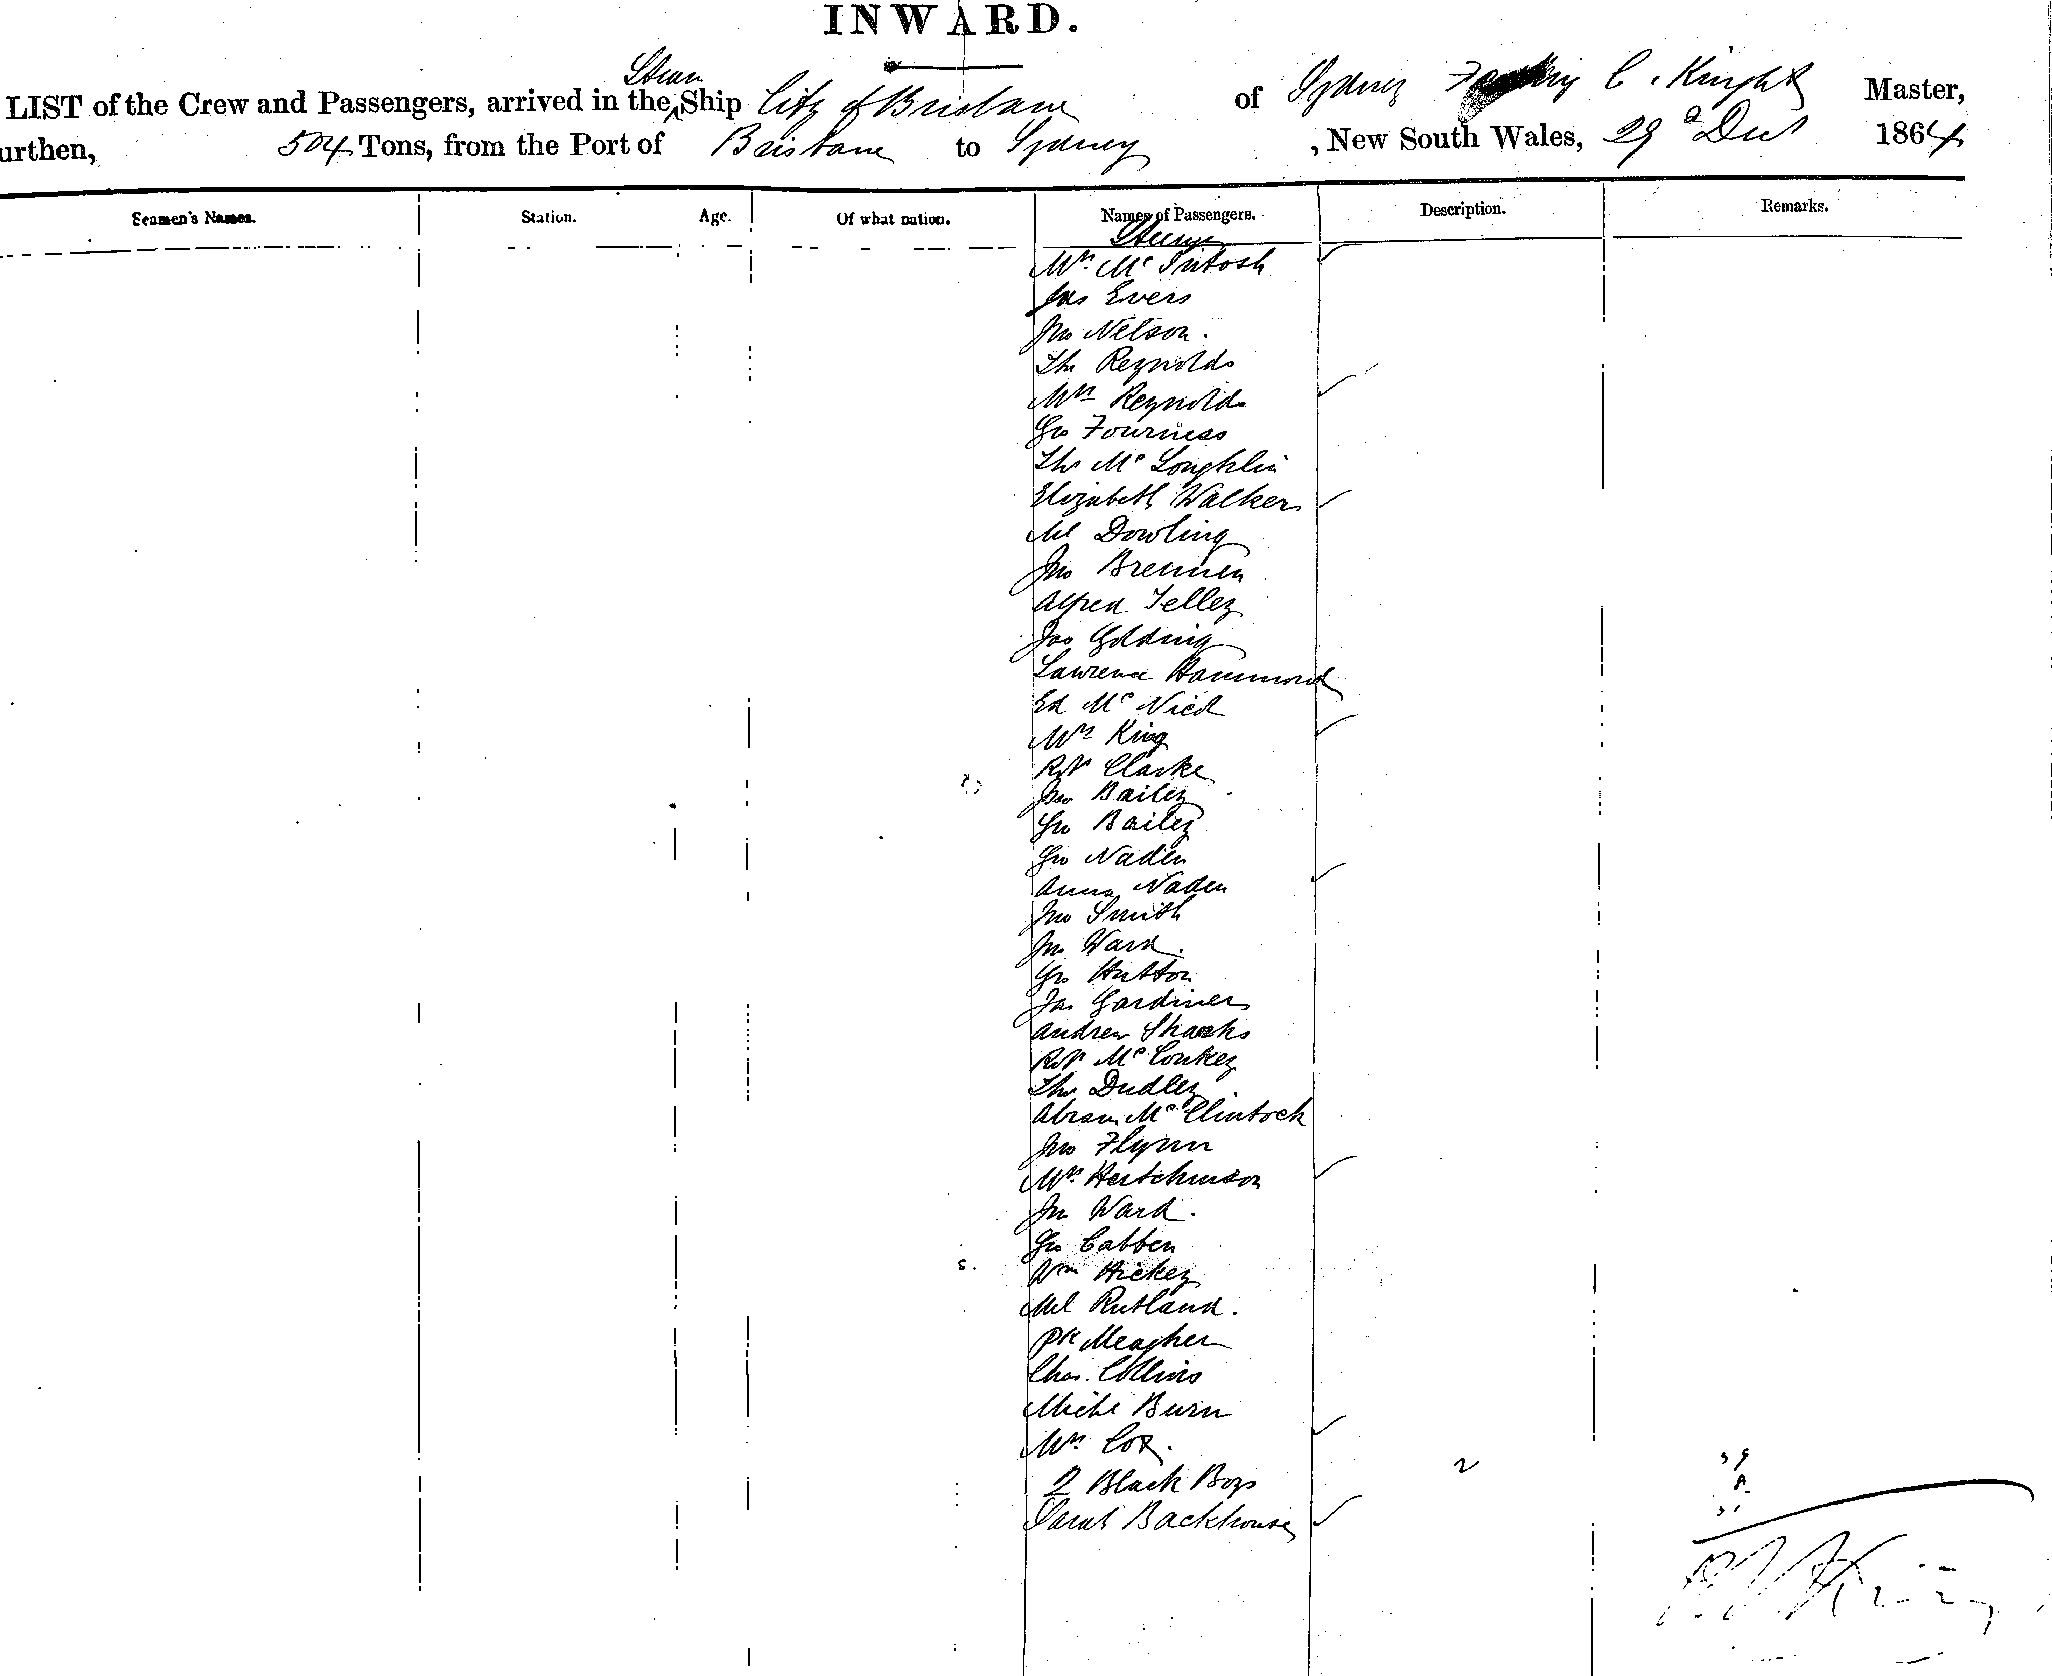 INWARD.
Steam
LIST of the Crew and Passengers, arrived in the Ship City of Brisbane of Sydney C. Knight Master,
urthen, 504 Tons, from the Port of Brisbane to Sydney , New South Wales, 29 Dec 1864
Seamen's Names. Station. Age. Of what nation. Names of Passengers. Description. Remarks.
Mrs. McIntosh
Jas Evers
Jno Nelson.
Ths Reynolds
Mrs Reynolds
Geo Fourness
Ths McLoughlin
Elizabeth Walker
Ml Dowling
Jno Brennen
Alfred Felley
Jas Golding
Lawrence Hammond
Ed McNied
Mrs King
Robt Clarke
Jno Bailey
Geo Bailey
Geo Naden
Anna Naden
Jno Smith
Jno Ward.
Geo Hutton
Jas Gardiner
Andrew Sharks
Robt McConkey
Ths Dudley
Abram McClintock
Jno Flynn
Mrs. Hutchinson
Jno Ward.
Geo Cabben
Wm Hickey
Ml Rutland.
Pk Meagher
Chas. Collins
Michl Burn
Mrs. Cox.
2 Black Boys 2
Sarah Backhouse